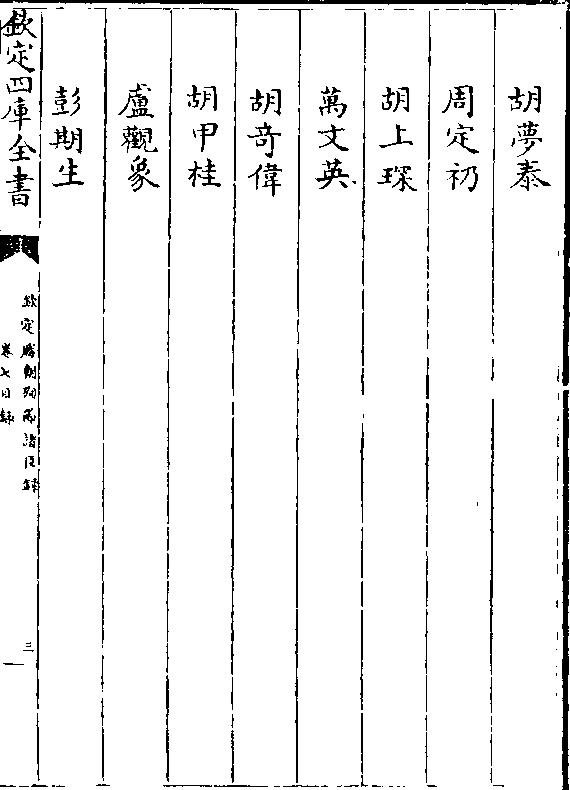 胡夢泰
周定礽
胡上琛
萬文英
胡竒偉
胡甲桂
盧觀象
彭期生
欽定四庫全書
欽定勝朝殉節諸臣録
卷七目録
三